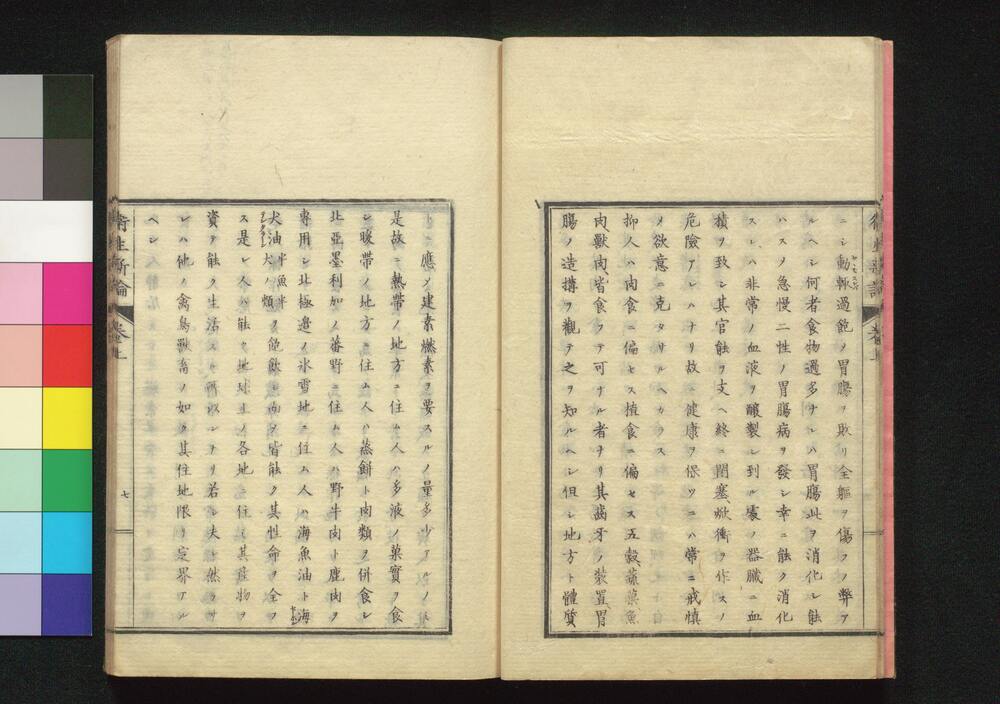 ニシ動輒過飽ノ胃腸ヲ敗リ全軀ヲ傷フノ弊ア
ルヘシ何者食物過多ナレハ胃腸此ヲ消化シ能
ハスメ急慢二性ノ胃腸病ヲ發シ幸ニ能ク消化
スレハ非常ノ血液ヲ釀製シ到ル處ノ器臓ニ血
積ヲ致シ其官能ヲ支ヘ終ニ閉塞焮衝ヲ作スノ
危險アレハナリ故ニ健康ヲ保ツニハ常ニ戒愼
メ欲意ニ克タサルヘカラス
抑人ハ肉食ニ偏セス植食ニ偏セス五穀蔬菓魚
肉獸肉皆食フテ可ナル者ナリ其齒牙ノ裝置胃
腸ノ造搆ヲ觀テ之ヲ知ルヘシ但シ地方ト體質
ニ應メ建素燃素ヲ要スルノ量多少アルノミ
是故ニ熱帶ノ地方ニ住ム人ハ多液ノ菓實ヲ食
シ暖帶ノ地方ニ住ム人ハ蒸餅ト肉類ヲ併食シ
北亞墨利加ノ蕃野ニ住ム人ハ野牛肉ト鹿肉ヲ
專用シ北極邊ノ氷雪地ニ住ム人ハ海魚油ト海
犬油ヲ飽飮シ而メ皆能ク其性命ヲ全フ
ス是レ人ハ能ク地球上ノ各地ニ住ミ其産物ヲ
資テ能ク生活スル所以ナリ若シ夫レ然ラサ
レハ他ノ禽鳥獸畜ノ如ク其住地限リ定界アル
ヘシ
衛生新論
卷上
七